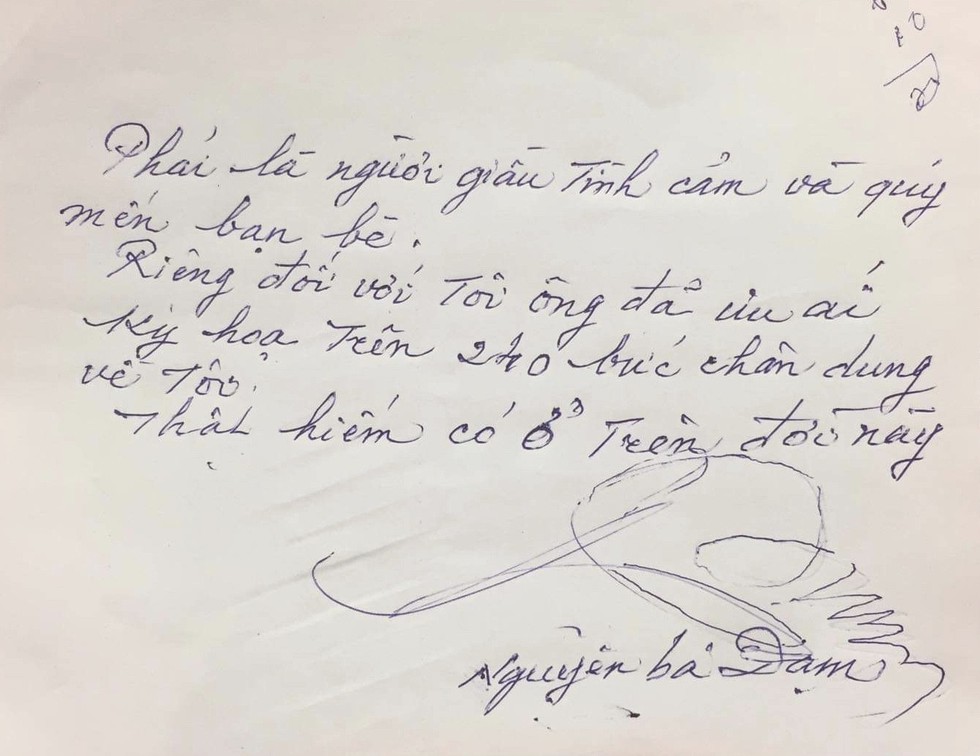 Phái là người giầu Tình cảm và quý
mến bạn bè.
Riêng đối với Tôi ông đã ưu ái
Ký hoạ Trên 240 bức chân dung
về Tôi.
Thật hiếm có ở Trên đời này
Nguyễn bá Đạm